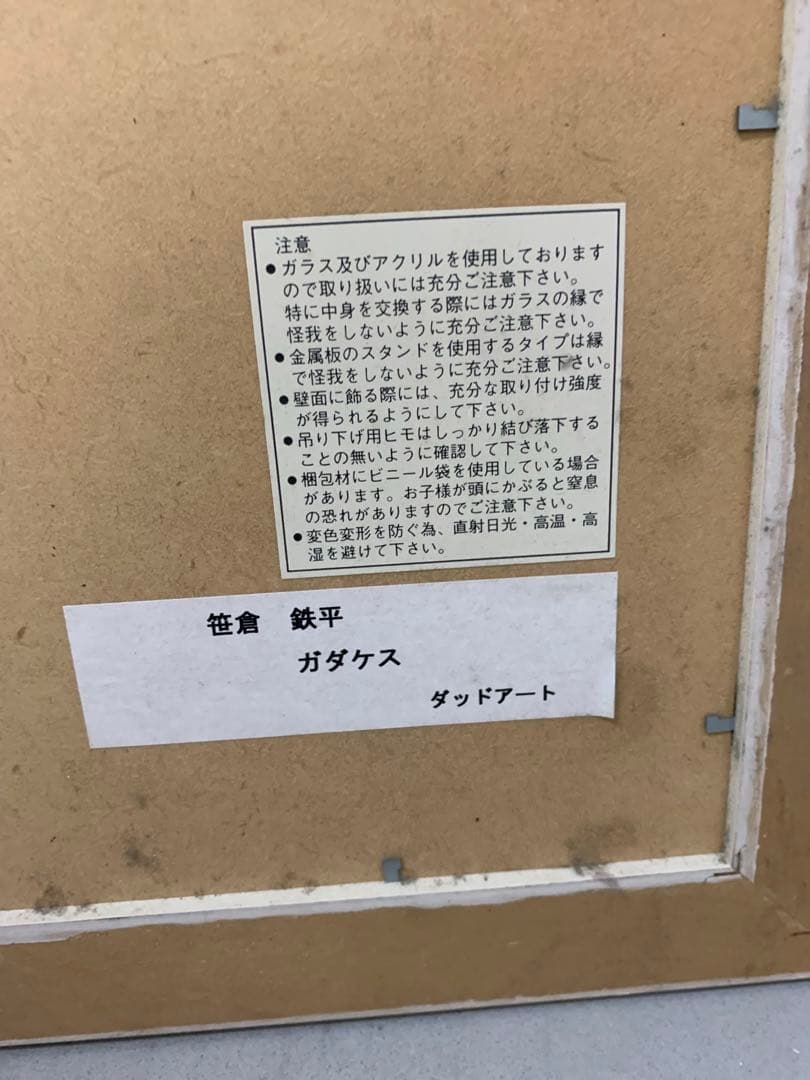 注意
●ガラス及びアクリルを使用しております
ので取り扱いには充分ご注意下さい。
特に中身を交換する際にはガラスの縁で
怪我をしないように充分ご注意下さい。
●金属板のスタンドを使用するタイプは縁
で怪我をしないように充分ご注意下さい。
●壁面に飾る際には、充分な取り付け強度
が得られるようにして下さい。
●吊り下げ用ヒモはしっかり結び落下する
ことの無いように確認して下さい。
●梱包材にビニール袋を使用している場合
があります。お子様が頭にかぶると窒息
の恐れがありますのでご注意下さい。
●変色変形を防ぐ為、直射日光・高温・高
湿を避けて下さい。
笹倉 鉄平
ガダケス
ダッドアート